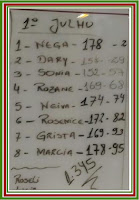 1º JULHO
1 - NEGA - 178 - 2
2 - DARY -
3 - SONIA -
4 - ROZANE - 169-68
5 - NEIVA - 174-79
6 - ROSENICE - 172-82
7 - GRISTA - 169-93
8 - MARCIA - 178-95
1.345
Roseli